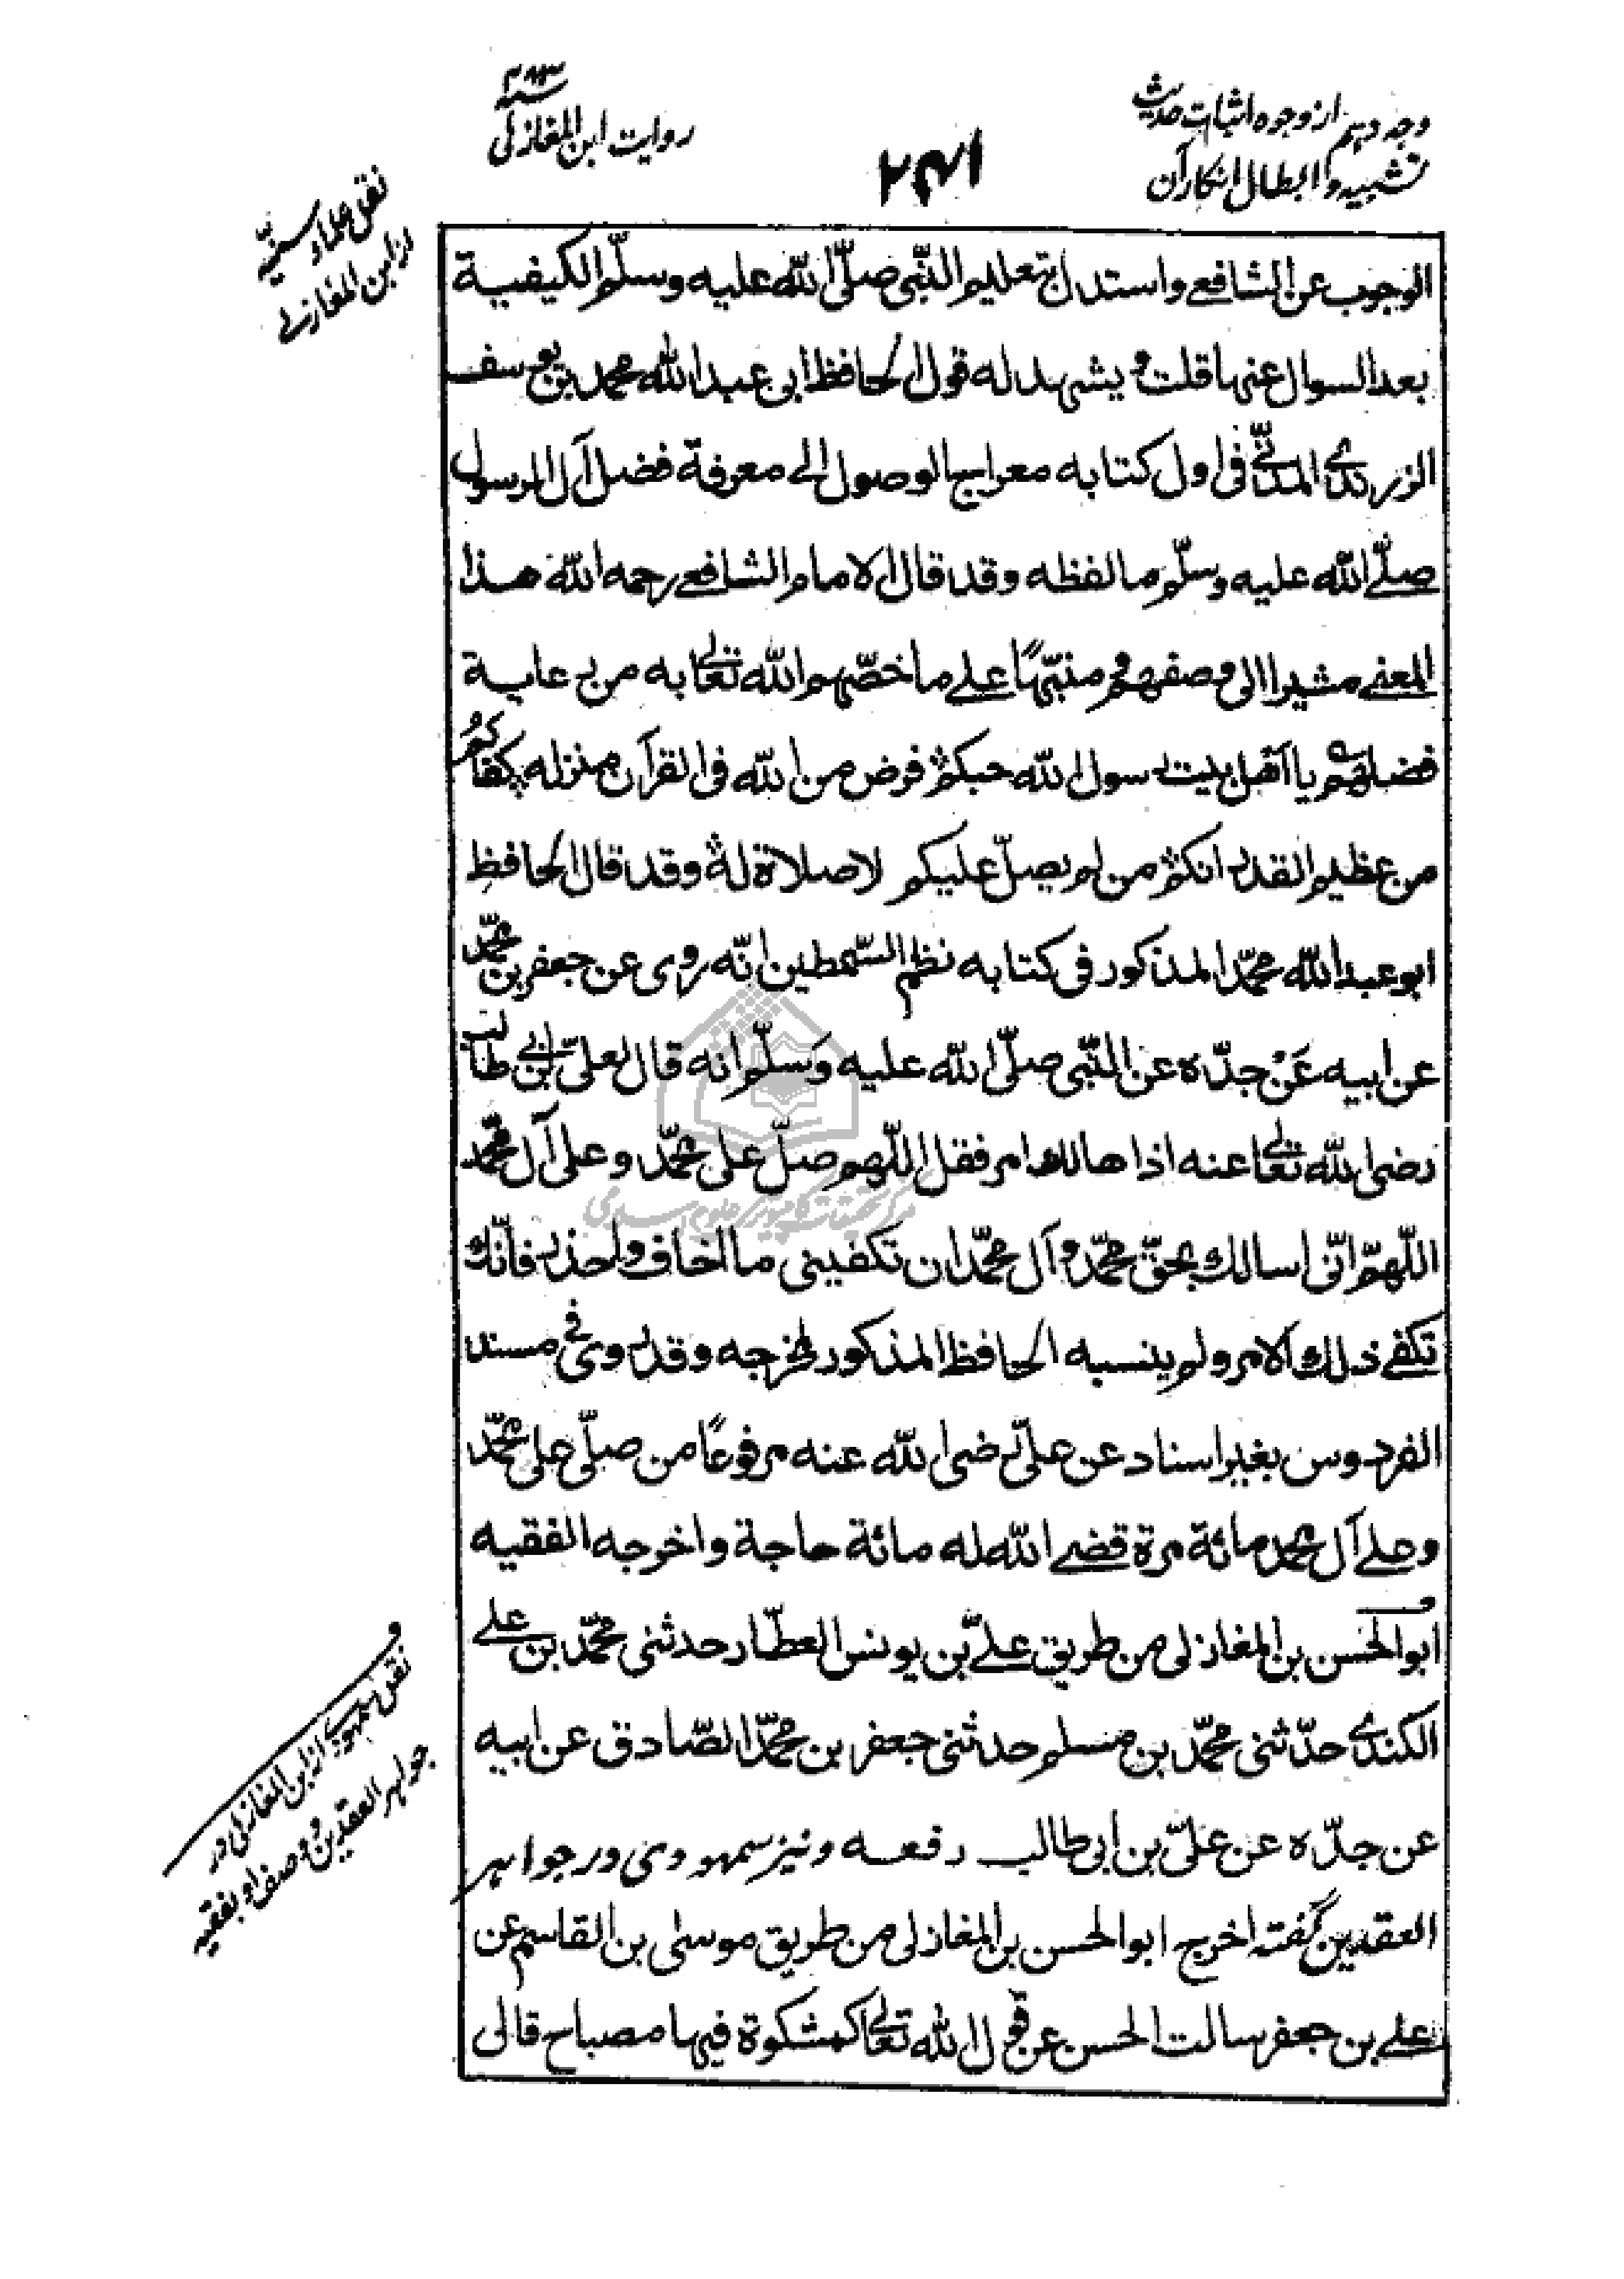 وجه دهم از وجوه اثبات حدیث
تشبیه و ابطال انکار آن
روایت ابن المغازلی
نقل علماء سنیه
از ابن المغازلی
الوجوب عن الشافعے واستدل بتعلیم النّبی صلّی اللّه علیه وسلّم الکیفیة
بعد السوال عنها قلت ویشهد له قول الحافظ ابی عبد اللّه محمد بن یوسف
الزرندی المدنی فی اول کتابه معراج الوصول الے معرفة فضل آل الرسول
صلّے اللّه علیه وسلّم ما لفظه وقد قال الامام الشافعے رحمه اللّه هذا
المعنے مشیرا الی وصفهم ومنبّهًا علے ما خصّهم اللّه تعالی به من رعایة
فضلهم یا اهل بیت رسول اللّه حبکم فرض من اللّه فی القرآن منزله کفاکم
من عظیم القدر انکم من لم یصلّ علیکم لا صلاة له وقد قال الحافظ
ابو عبد اللّه محمّد المذکور فی کتابه نظم السّمطین انّه روی عن جعفر بن محمّد
عن ابیه عَن جدّه عن النّبی صلّی اللّه علیه وَسلّم انه قال لعلیّ بن ابی طالب
رضی اللّه تعالی عنه اذا هالك امر فقل اللّهم صلّ علی محمّد وعلی آل محمّد
اللّهمّ انّی اسالك بحقّ محمّد وآل محمّد ان تکفینی ما اخاف واحذر فانّك
تکفے ذلك الامر ولم ینسبه الحافظ المذکور لمخرجه وقد روی فی مسند
الفردوس بغیر اسناد عن علیّ رضی اللّه عنه مرفوعًا من صلّی علی محمّد
وعلے آل محمد مائة مرة قضے اللّه له مائة حاجة واخرجه الفقیه
ابو الحسن بن المغازلی من طریق علےّ بن یونس العطّار حدثنی محمّد بن علے
الکندی حدّثنی محمّد بن مسلم حدثنی جعفر بن محمّد الصّادق عن ابیه
عن جدّه عن علیّ بن ابی طالب رفعه ونیز سمهودی در جواهر
العقدین گفته اخرج ابو الحسن بن المغازلی من طریق موسی بن القاسم عن
علے بن جعفر سالت الحسن عن قول اللّه تعالی کمشکوة فیها مصباح قال
نقل سمهودی از ابن المغازلی در
جواهر العقدین و وصف او بفقیه